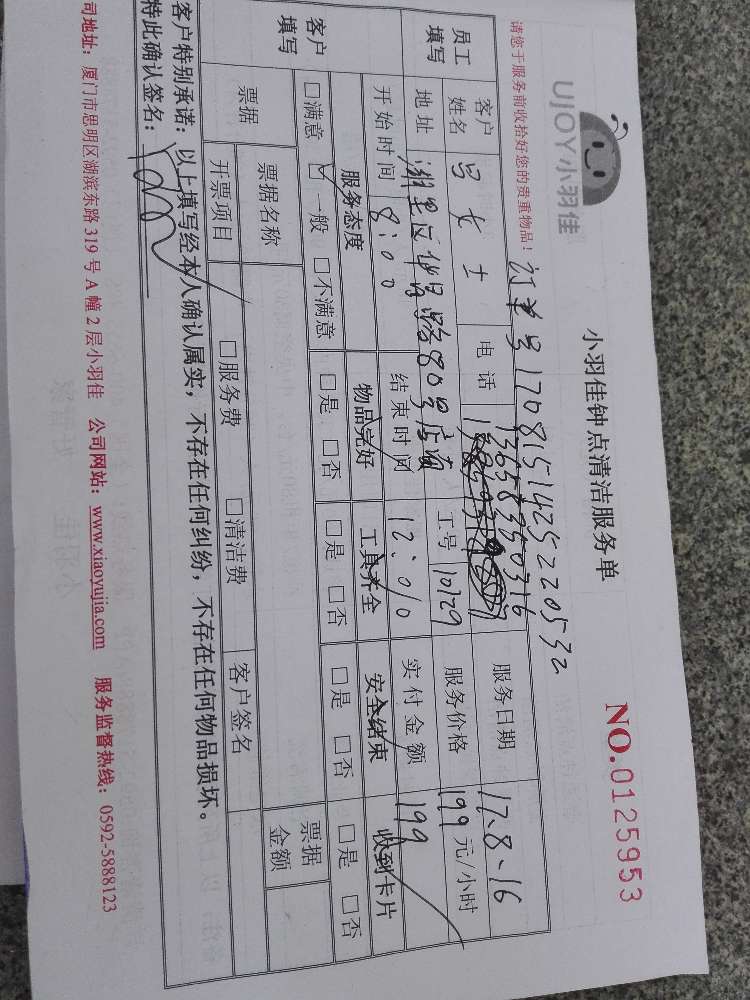 UJOY小羽佳
小羽佳钟点清洁服务单
NO.0125953
请您于服务前收拾好您的贵重物品！
订单号170815142522053 2
员工填写
客户姓名 吕女士 电话 13658350316 服务日期 17.8.16
地址 路80号店 工号 10129 服务价格 199 元/小时
开始时间 8:00 结束时间 12:00 实付金额 199
客户填写
服务态度 物品完好 工具齐全 安全结束 收到卡片
□满意 □一般 □不满意 □是 □否 □是 □否 □是 □否 □是 □否
票据
票据名称 票据金额
开票项目 □服务费 □清洁费 客户签名
客户特别承诺：以上填写经本人确认属实，不存在任何纠纷，不存在任何物品损坏。
特此确认签名：
司地址：厦门市思明区湖滨东路 319 号 A 幢 2 层小羽佳 公司网站：www.xiaoyujia.com 服务监督热线：0592-5888123